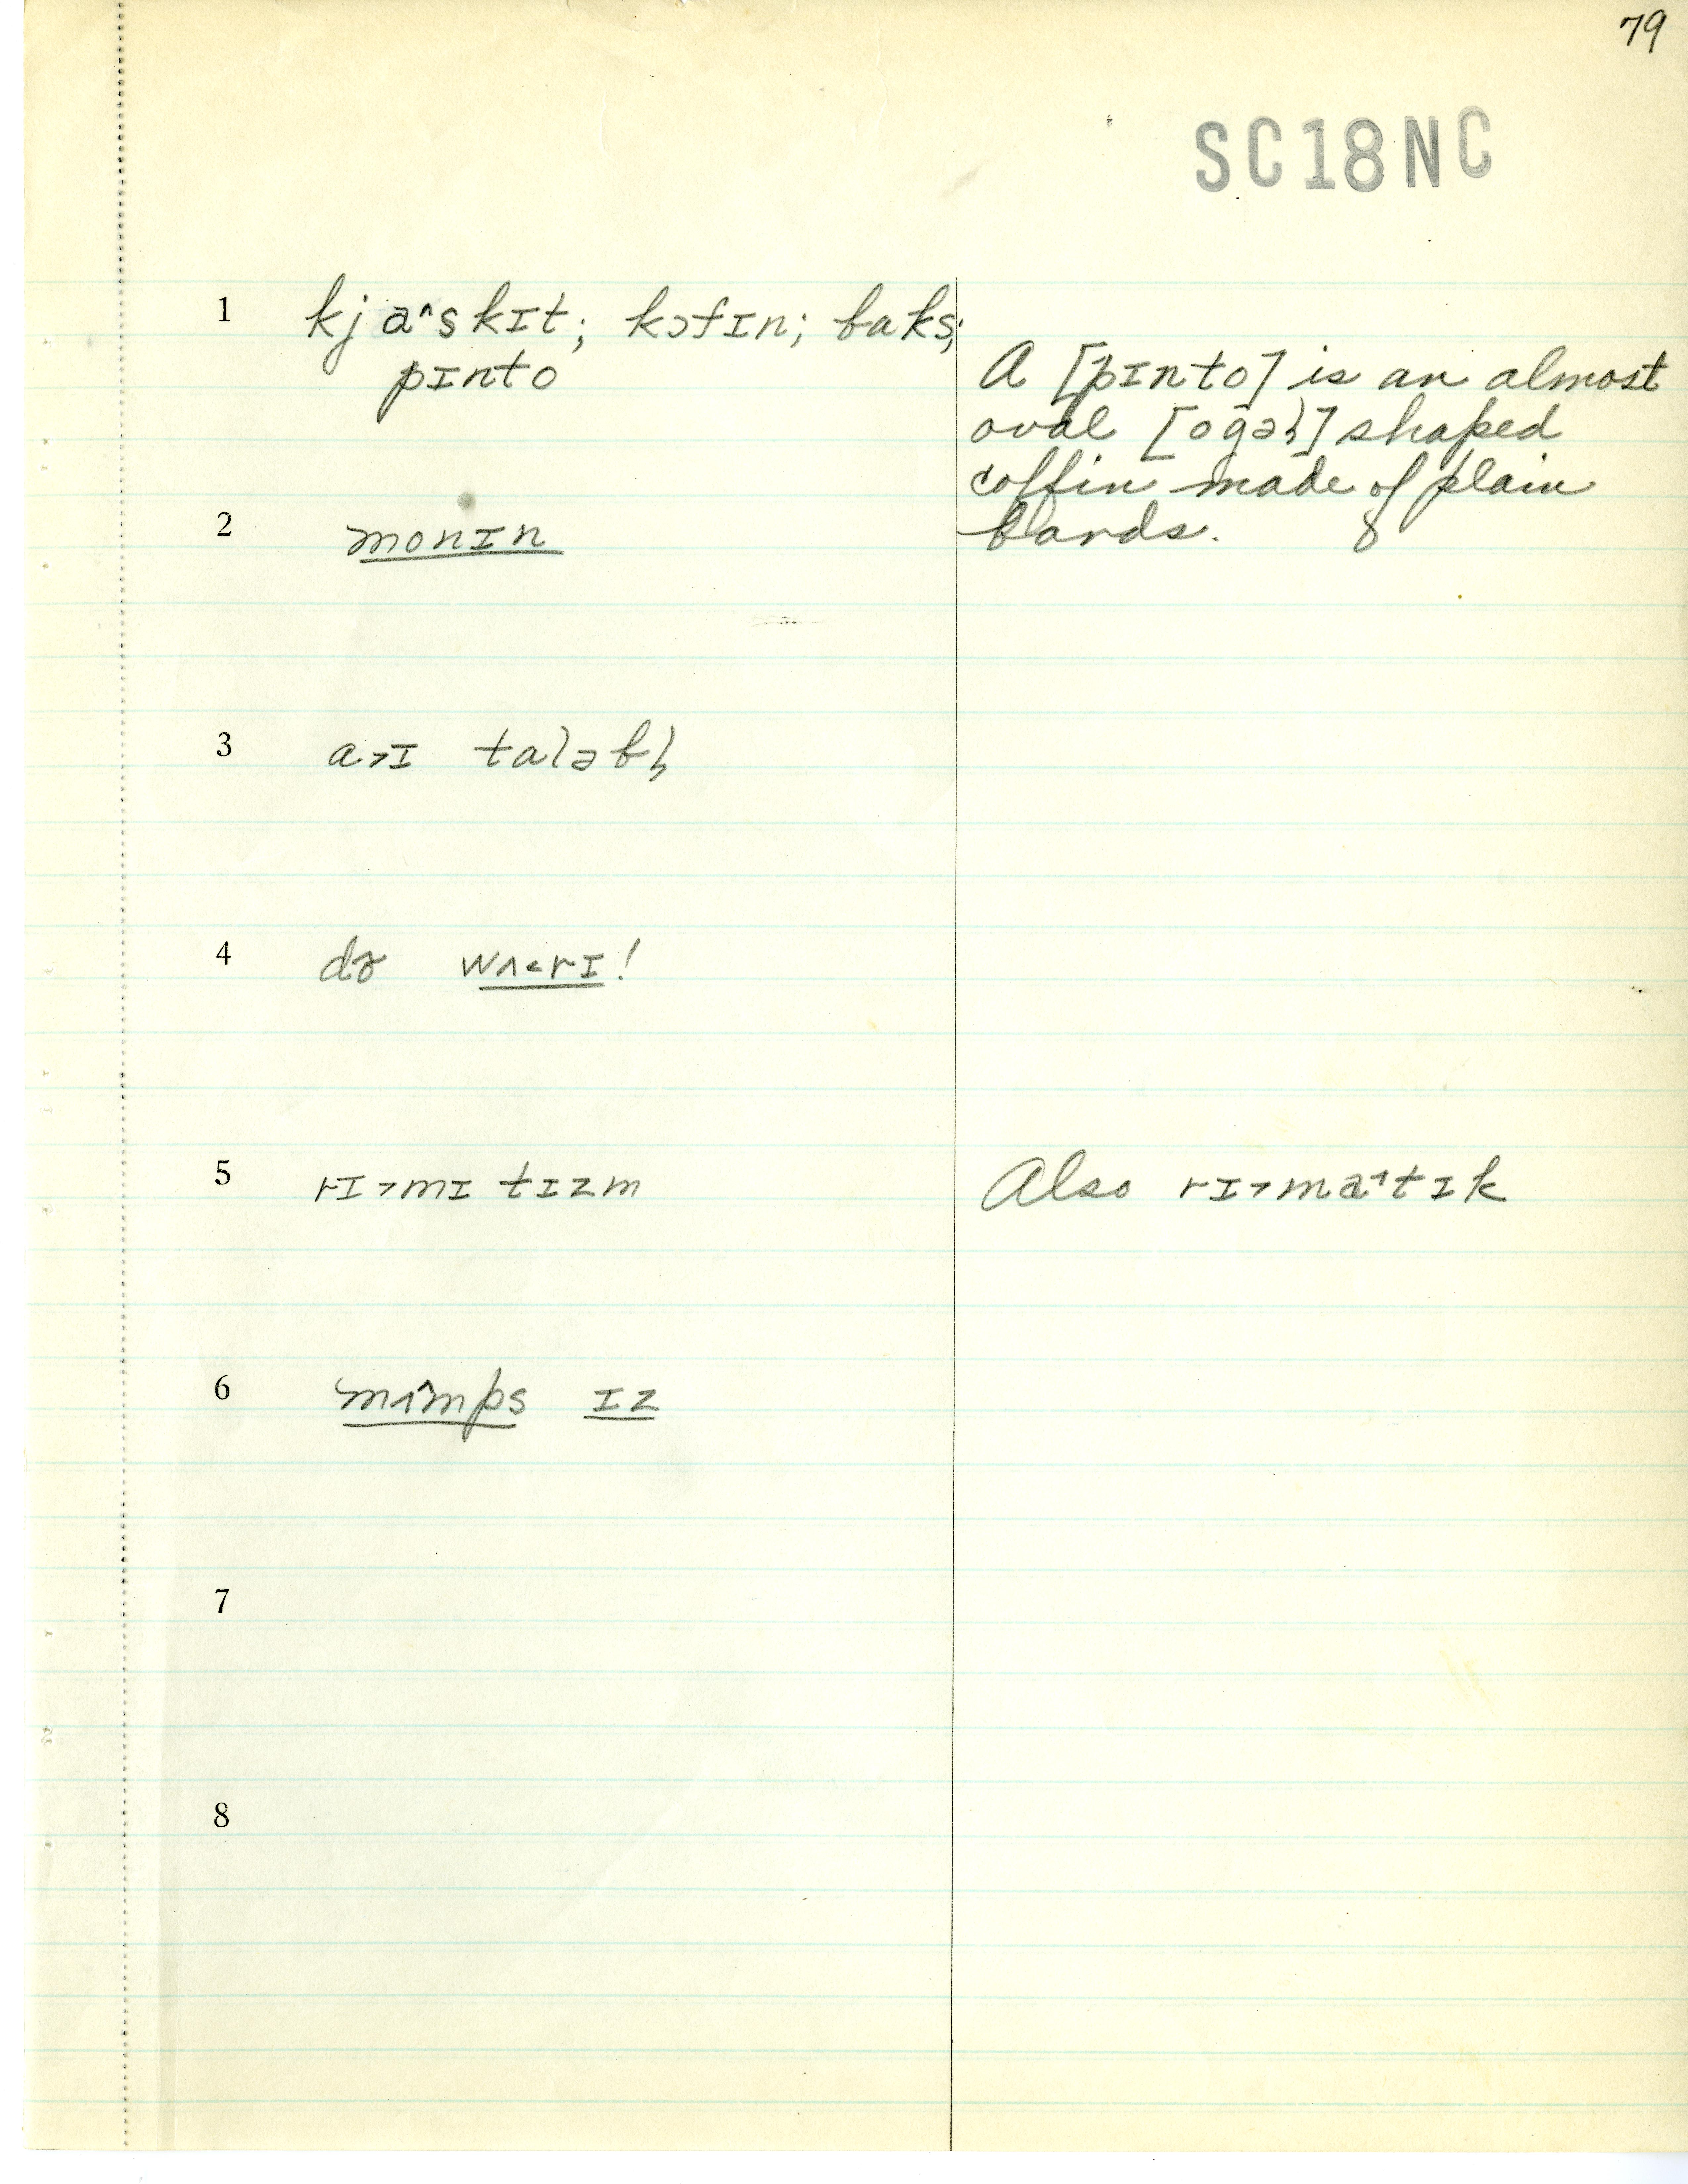 79
SC18NC
1 kja^skɪt; kɔfɪn; baks;
pɪnto
A [pɪnto] is an almost
oval [ogəl] shaped
coffin made of plain
bords.
2 monɪn
3
4
5 rɪ>mɪ tɪzm
Also rɪ>ma^tɪk
6 mʌ^mps ɪz
7
8